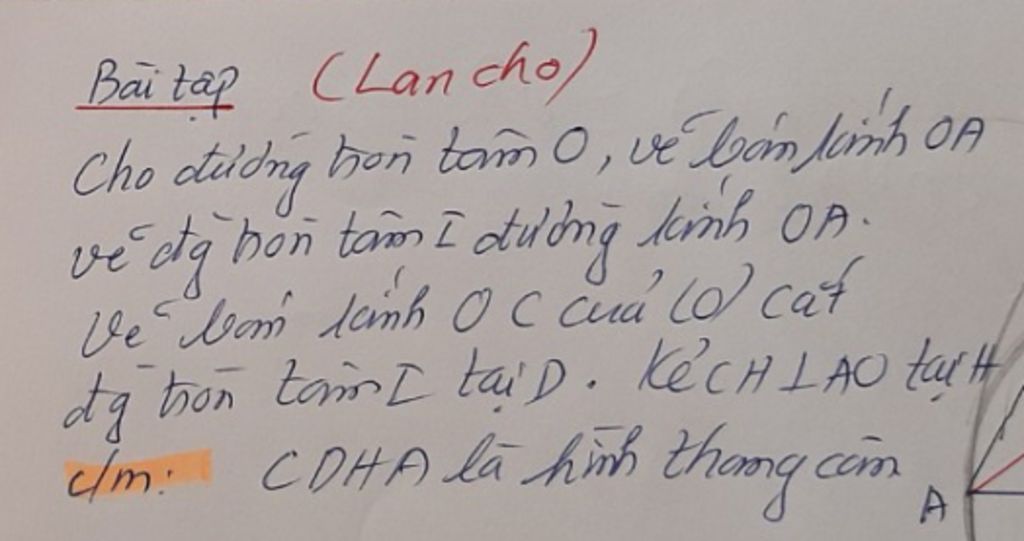 Bài tập (Lan cho)
Cho đường tròn tâm O, vẽ bán kính OA
vẽ đg tròn tâm I đường kính OA.
Vẽ bán kính OC của (O) cắt
đg tròn tâm I tại D. Kẻ CH ⊥ AO tại H
c/m: CDHA là hình thang cân
A